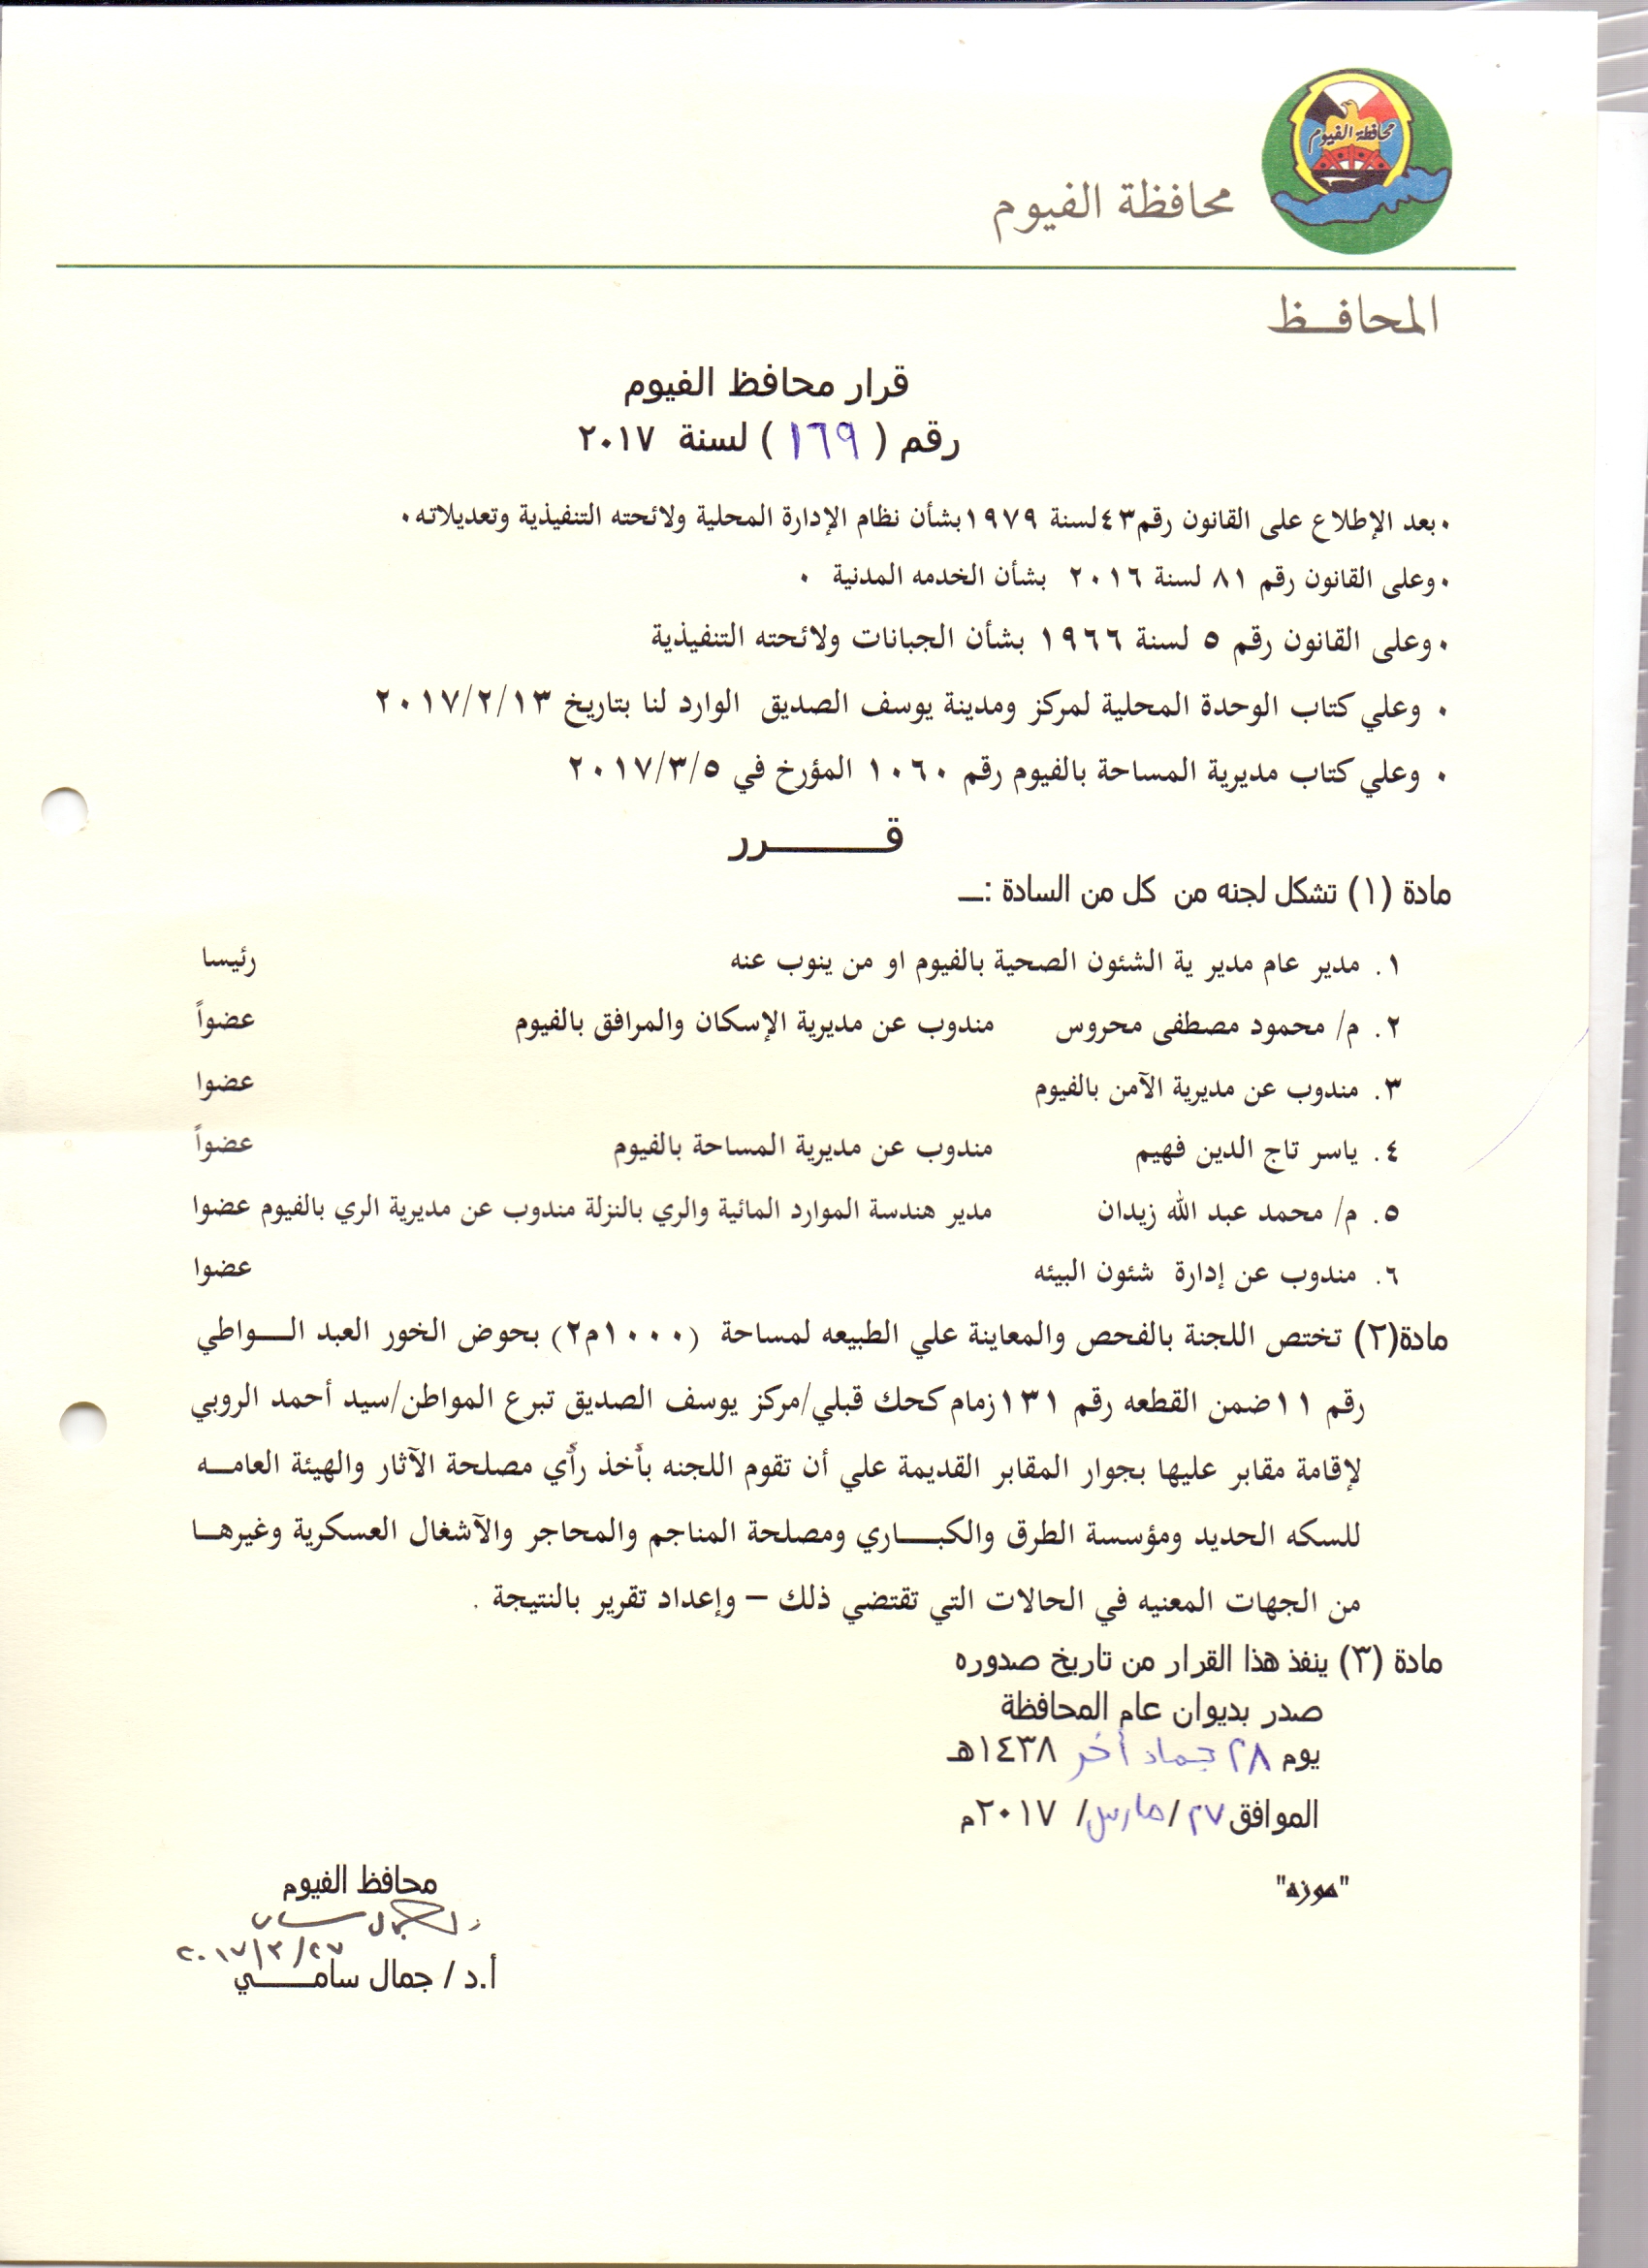 محافظة الفيوم
محافظة الفيوم
المحافـــظ
قرار محافظ الفيوم
رقم ( ١٦٩ ) لسنة ٢٠١٧
٠بعد الإطلاع على القانون رقم٤٣لسنة ١٩٧٩بشأن نظام الإدارة المحلية ولائحته التنفيذية وتعديلاته٠
٠وعلى القانون رقم ٨١ لسنة ٢٠١٦ بشأن الخدمه المدنية ٠
٠وعلى القانون رقم ٥ لسنة ١٩٦٦ بشأن الجبانات ولائحته التنفيذية
٠ وعلي كتاب الوحدة المحلية لمركز ومدينة يوسف الصديق الوارد لنا بتاريخ ٢٠١٧/٢/١٣
٠ وعلي كتاب مديرية المساحة بالفيوم رقم ١٠٦٠ المؤرخ في ٢٠١٧/٣/٥
قـــــــرر
مادة (١) تشكل لجنه من كل من السادة :ــ
١. مدير عام مدير ية الشئون الصحية بالفيوم او من ينوب عنه رئيسا
٢. م/ محمود مصطفى محروس مندوب عن مديرية الإسكان والمرافق بالفيوم عضواً
٣. مندوب عن مديرية الآمن بالفيوم عضوا
٤. ياسر تاج الدين فهيم مندوب عن مديرية المساحة بالفيوم عضواً
٥. م/ محمد عبد الله زيدان مدير هندسة الموارد المائية والري بالنزلة مندوب عن مديرية الري بالفيوم عضوا
٦. مندوب عن إدارة شئون البيئه عضوا
مادة(٢) تختص اللجنة بالفحص والمعاينة علي الطبيعه لمساحة (١٠٠٠م٢) بحوض الخور العبد الـــواطي
رقم ١١ضمن القطعه رقم ١٣١زمام كحك قبلي/مركز يوسف الصديق تبرع المواطن/سيد أحمد الروبي
لإقامة مقابر عليها بجوار المقابر القديمة علي أن تقوم اللجنه بأخذ رأي مصلحة الآثار والهيئة العامــه
للسكه الحديد ومؤسسة الطرق والكبـــاري ومصلحة المناجم والمحاجر والآشغال العسكرية وغيرهــا
من الجهات المعنيه في الحالات التي تقتضي ذلك – وإعداد تقرير بالنتيجة .
مادة (٣) ينفذ هذا القرار من تاريخ صدوره
صدر بديوان عام المحافظة
يوم ٢٨ جماد أخر ١٤٣٨هـ
الموافق ٢٧ /مارس/ ٢٠١٧م
"موزه"
محافظ الفيوم
٢٠١٧/٣/٢٧
أ.د / جمال سامـــــي